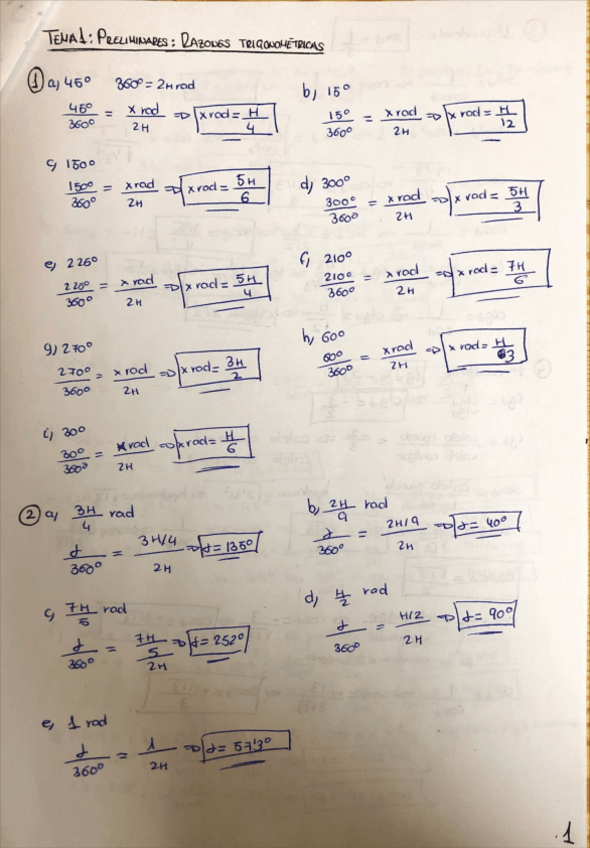 TEMA 1: PRELIMINARES: RAZONES TRIGONOMÉTRICAS
① a) 45° 360° = 2π rad
45°/360° = x rad/2π ⇒ x rad = π/4
b) 15°
15°/360° = x rad/2π ⇒ x rad = π/12
c) 150°
150°/360° = x rad/2π ⇒ x rad = 5π/6
d) 300°
300°/360° = x rad/2π ⇒ x rad = 5π/3
e) 225°
225°/360° = x rad/2π ⇒ x rad = 5π/4
f) 210°
210°/360° = x rad/2π ⇒ x rad = 7π/6
g) 270°
270°/360° = x rad/2π ⇒ x rad = 3π/2
h) 60°
60°/360° = x rad/2π ⇒ x rad = π/3
i) 30°
30°/360° = x rad/2π ⇒ x rad = π/6
② a) 3π/4 rad
α/360° = 3π/4/2π ⇒ α = 135°
b) 2π/9 rad
α/360° = 2π/9/2π ⇒ α = 40°
c) 7π/5 rad
α/360° = 7π/5/2π ⇒ α = 252°
d) π/2 rad
α/360° = π/2/2π ⇒ α = 90°
e) 1 rad
α/360° = 1/2π ⇒ α = 57'3°
.1